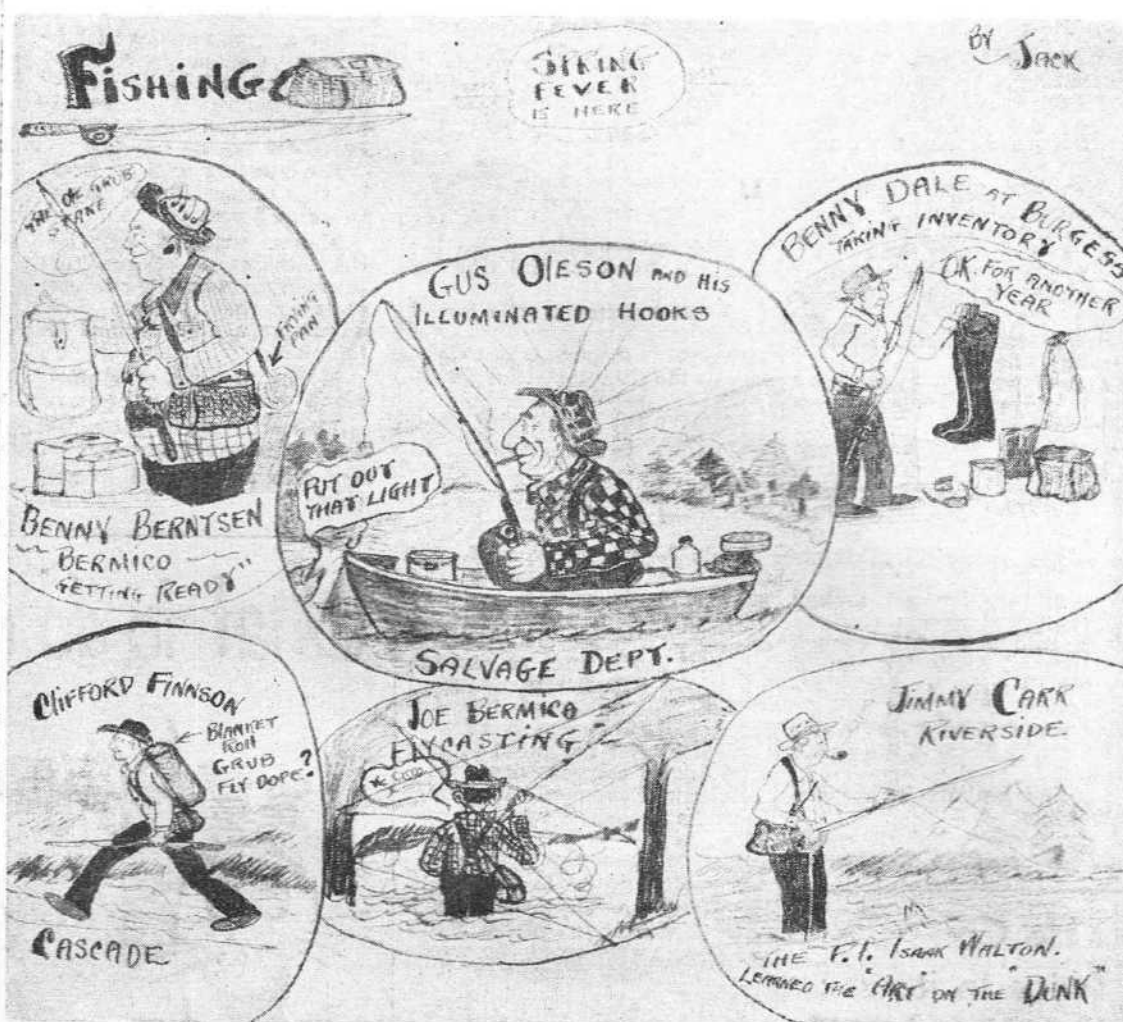 FISHING
SPRING
FEVER
IS HERE
BY JACK
THE OLE GRUB
STAKE
FRYING
PAN
BENNY BERNTSEN
BERMICO
GETTING READY"
GUS OLESON AND HIS
ILLUMINATED HOOKS
PUT OUT
THAT LIGHT
SALVAGE DEPT.
BENNY DALE AT BURGESS
TAKING INVENTORY
O.K. FOR ANOTHER
YEAR
CLIFFORD FINNSON
BLANKET
ROLL
GRUB
FLY DOPE?
CASCADE
JOE BERMICO
FLYCASTING
JIMMY CARR
RIVERSIDE.
THE F.I. ISAAK WALTON.
LEARNED THE "ART" ON THE "DUNK"